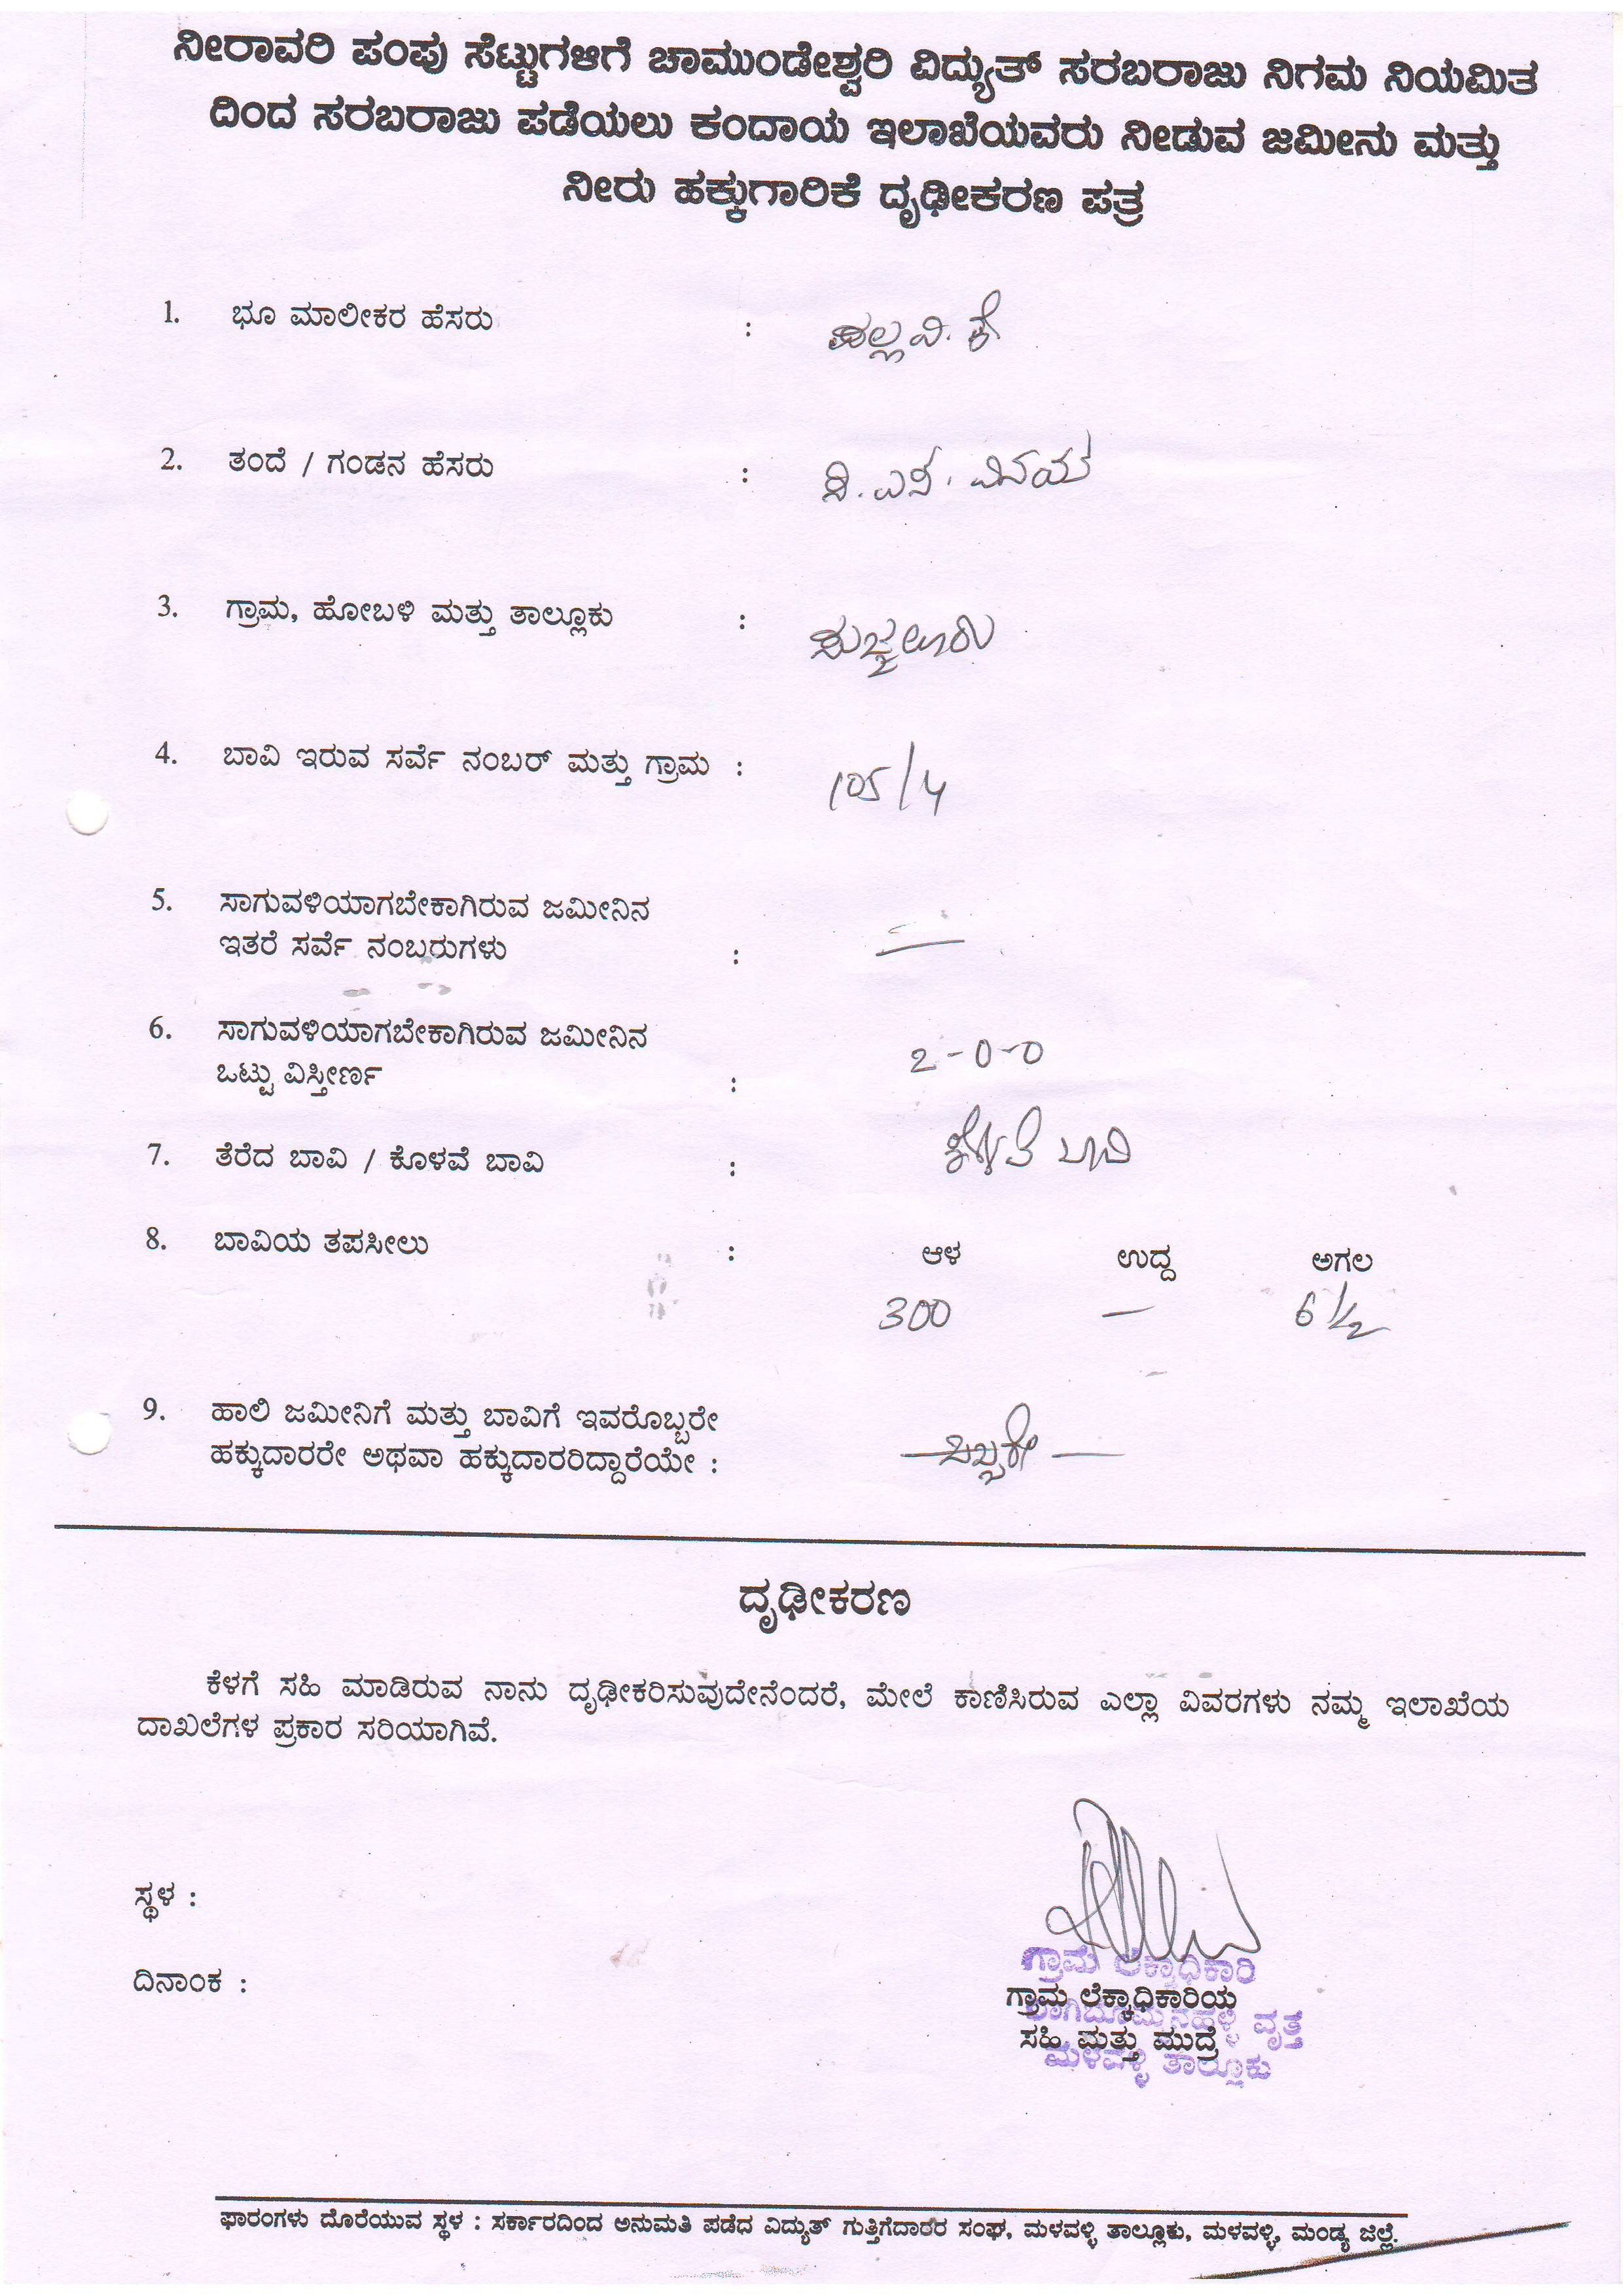 ನೀರಾವರಿ ಪಂಪು ಸೆಟ್ಟುಗಳಿಗೆ ಚಾಮುಂಡೇಶ್ವರಿ ವಿದ್ಯುತ್ ಸರಬರಾಜು ನಿಗಮ ನಿಯಮಿತ
ದಿಂದ ಸರಬರಾಜು ಪಡೆಯಲು ಕಂದಾಯ ಇಲಾಖೆಯವರು ನೀಡುವ ಜಮೀನು ಮತ್ತು
ನೀರು ಹಕ್ಕುಗಾರಿಕೆ ದೃಢೀಕರಣ ಪತ್ರ
1. ಭೂ ಮಾಲೀಕರ ಹೆಸರು : ಪಲ್ಲವಿ. ಕೆ
2. ತಂದೆ / ಗಂಡನ ಹೆಸರು : ವಿನಯ
3. ಗ್ರಾಮ, ಹೋಬಳಿ ಮತ್ತು ತಾಲ್ಲೂಕು :
4. ಬಾವಿ ಇರುವ ಸರ್ವೆ ನಂಬರ್ ಮತ್ತು ಗ್ರಾಮ : 105/4
5. ಸಾಗುವಳಿಯಾಗಬೇಕಾಗಿರುವ ಜಮೀನಿನ
ಇತರೆ ಸರ್ವೆ ನಂಬರುಗಳು : —
6. ಸಾಗುವಳಿಯಾಗಬೇಕಾಗಿರುವ ಜಮೀನಿನ
ಒಟ್ಟು ವಿಸ್ತೀರ್ಣ : 2-0-0
7. ತೆರೆದ ಬಾವಿ / ಕೊಳವೆ ಬಾವಿ : ಕೊಳವೆ ಬಾವಿ
8. ಬಾವಿಯ ತಪಸೀಲು : ಆಳ ಉದ್ದ ಅಗಲ
300 — 6 1/2
9. ಹಾಲಿ ಜಮೀನಿಗೆ ಮತ್ತು ಬಾವಿಗೆ ಇವರೊಬ್ಬರೇ
ಹಕ್ಕುದಾರರೇ ಅಥವಾ ಹಕ್ಕುದಾರರಿದ್ದಾರೆಯೇ :
ದೃಢೀಕರಣ
ಕೆಳಗೆ ಸಹಿ ಮಾಡಿರುವ ನಾನು ದೃಢೀಕರಿಸುವುದೇನೆಂದರೆ, ಮೇಲೆ ಕಾಣಿಸಿರುವ ಎಲ್ಲಾ ವಿವರಗಳು ನಮ್ಮ ಇಲಾಖೆಯ
ದಾಖಲೆಗಳ ಪ್ರಕಾರ ಸರಿಯಾಗಿವೆ.
ಸ್ಥಳ :
ದಿನಾಂಕ :
ಗ್ರಾಮ ಲೆಕ್ಕಾಧಿಕಾರಿ
ಗ್ರಾಮ ಲೆಕ್ಕಾಧಿಕಾರಿಯ
ವೃತ್ತ
ಸಹಿ ಮತ್ತು ಮುದ್ರೆ
ಮಳವಳ್ಳಿ ತಾಲ್ಲೂಕು
ಫಾರಂಗಳು ದೊರೆಯುವ ಸ್ಥಳ : ಸರ್ಕಾರದಿಂದ ಅನುಮತಿ ಪಡೆದ ವಿದ್ಯುತ್ ಗುತ್ತಿಗೆದಾರರ ಸಂಘ, ಮಳವಳ್ಳಿ ತಾಲ್ಲೂಕು, ಮಳವಳ್ಳಿ, ಮಂಡ್ಯ ಜಿಲ್ಲೆ.